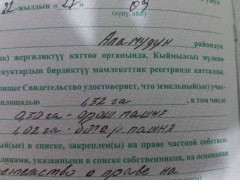 22-жылдын "27" 09
(күнү, айы)
Аламудун районун
жергиликтүү каттоо органында, Кыймылсыз мүлккө
укуктардын бирдиктүү мамлекеттик реестринде катталды.
Свидетельство удостоверяет, что земельный(ые) уча-
площадью 1,32 га, в том числе
0,30 га - орош. пашня
1,02 га - богар. пашня
ный(ые) в списке, закреплен(ы) на праве частной собстве
лицами, указанными в списке собственников, на основан
о праве на